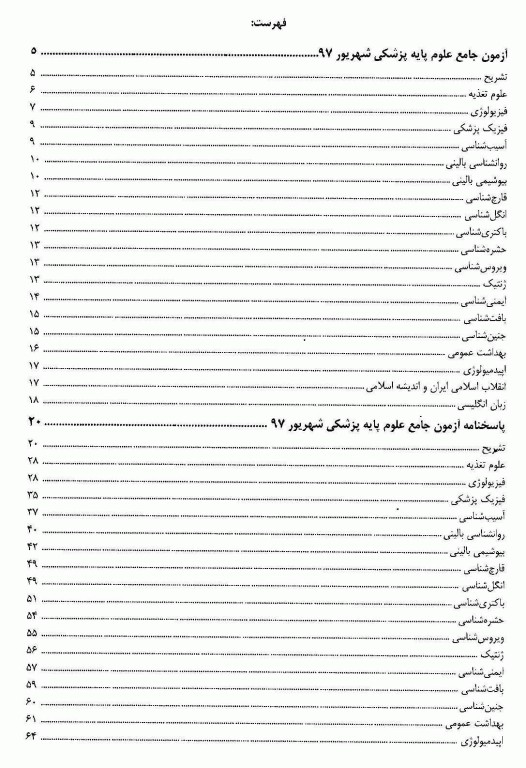 فهرست:
آزمون جامع علوم پایه پزشکی شهریور ۹۷ ........ ۵
تشریح ........ ۵
علوم تغذیه ........ ۶
فیزیولوژی ........ ۷
فیزیک پزشکی ........ ۹
آسیب‌شناسی ........ ۹
روانشناسی بالینی ........ ۱۰
بیوشیمی بالینی ........ ۱۰
قارچ‌شناسی ........ ۱۲
انگل‌شناسی ........ ۱۲
باکتری‌شناسی ........ ۱۲
حشره‌شناسی ........ ۱۳
ویروس‌شناسی ........ ۱۳
ژنتیک ........ ۱۳
ایمنی‌شناسی ........ ۱۴
بافت‌شناسی ........ ۱۵
جنین‌شناسی ........ ۱۵
بهداشت عمومی ........ ۱۶
اپیدمیولوژی ........ ۱۷
انقلاب اسلامی ایران و اندیشه اسلامی ........ ۱۷
زبان انگلیسی ........ ۱۸
پاسخنامه آزمون جامع علوم پایه پزشکی شهریور ۹۷ ........ ۲۰
تشریح ........ ۲۰
علوم تغذیه ........ ۲۸
فیزیولوژی ........ ۲۸
فیزیک پزشکی ........ ۳۵
آسیب‌شناسی ........ ۳۷
روانشناسی بالینی ........ ۴۰
بیوشیمی بالینی ........ ۴۲
قارچ‌شناسی ........ ۴۹
انگل‌شناسی ........ ۴۹
باکتری‌شناسی ........ ۵۱
حشره‌شناسی ........ ۵۴
ویروس‌شناسی ........ ۵۵
ژنتیک ........ ۵۶
ایمنی‌شناسی ........ ۵۷
بافت‌شناسی ........ ۵۹
جنین‌شناسی ........ ۶۰
بهداشت عمومی ........ ۶۱
اپیدمیولوژی ........ ۶۴